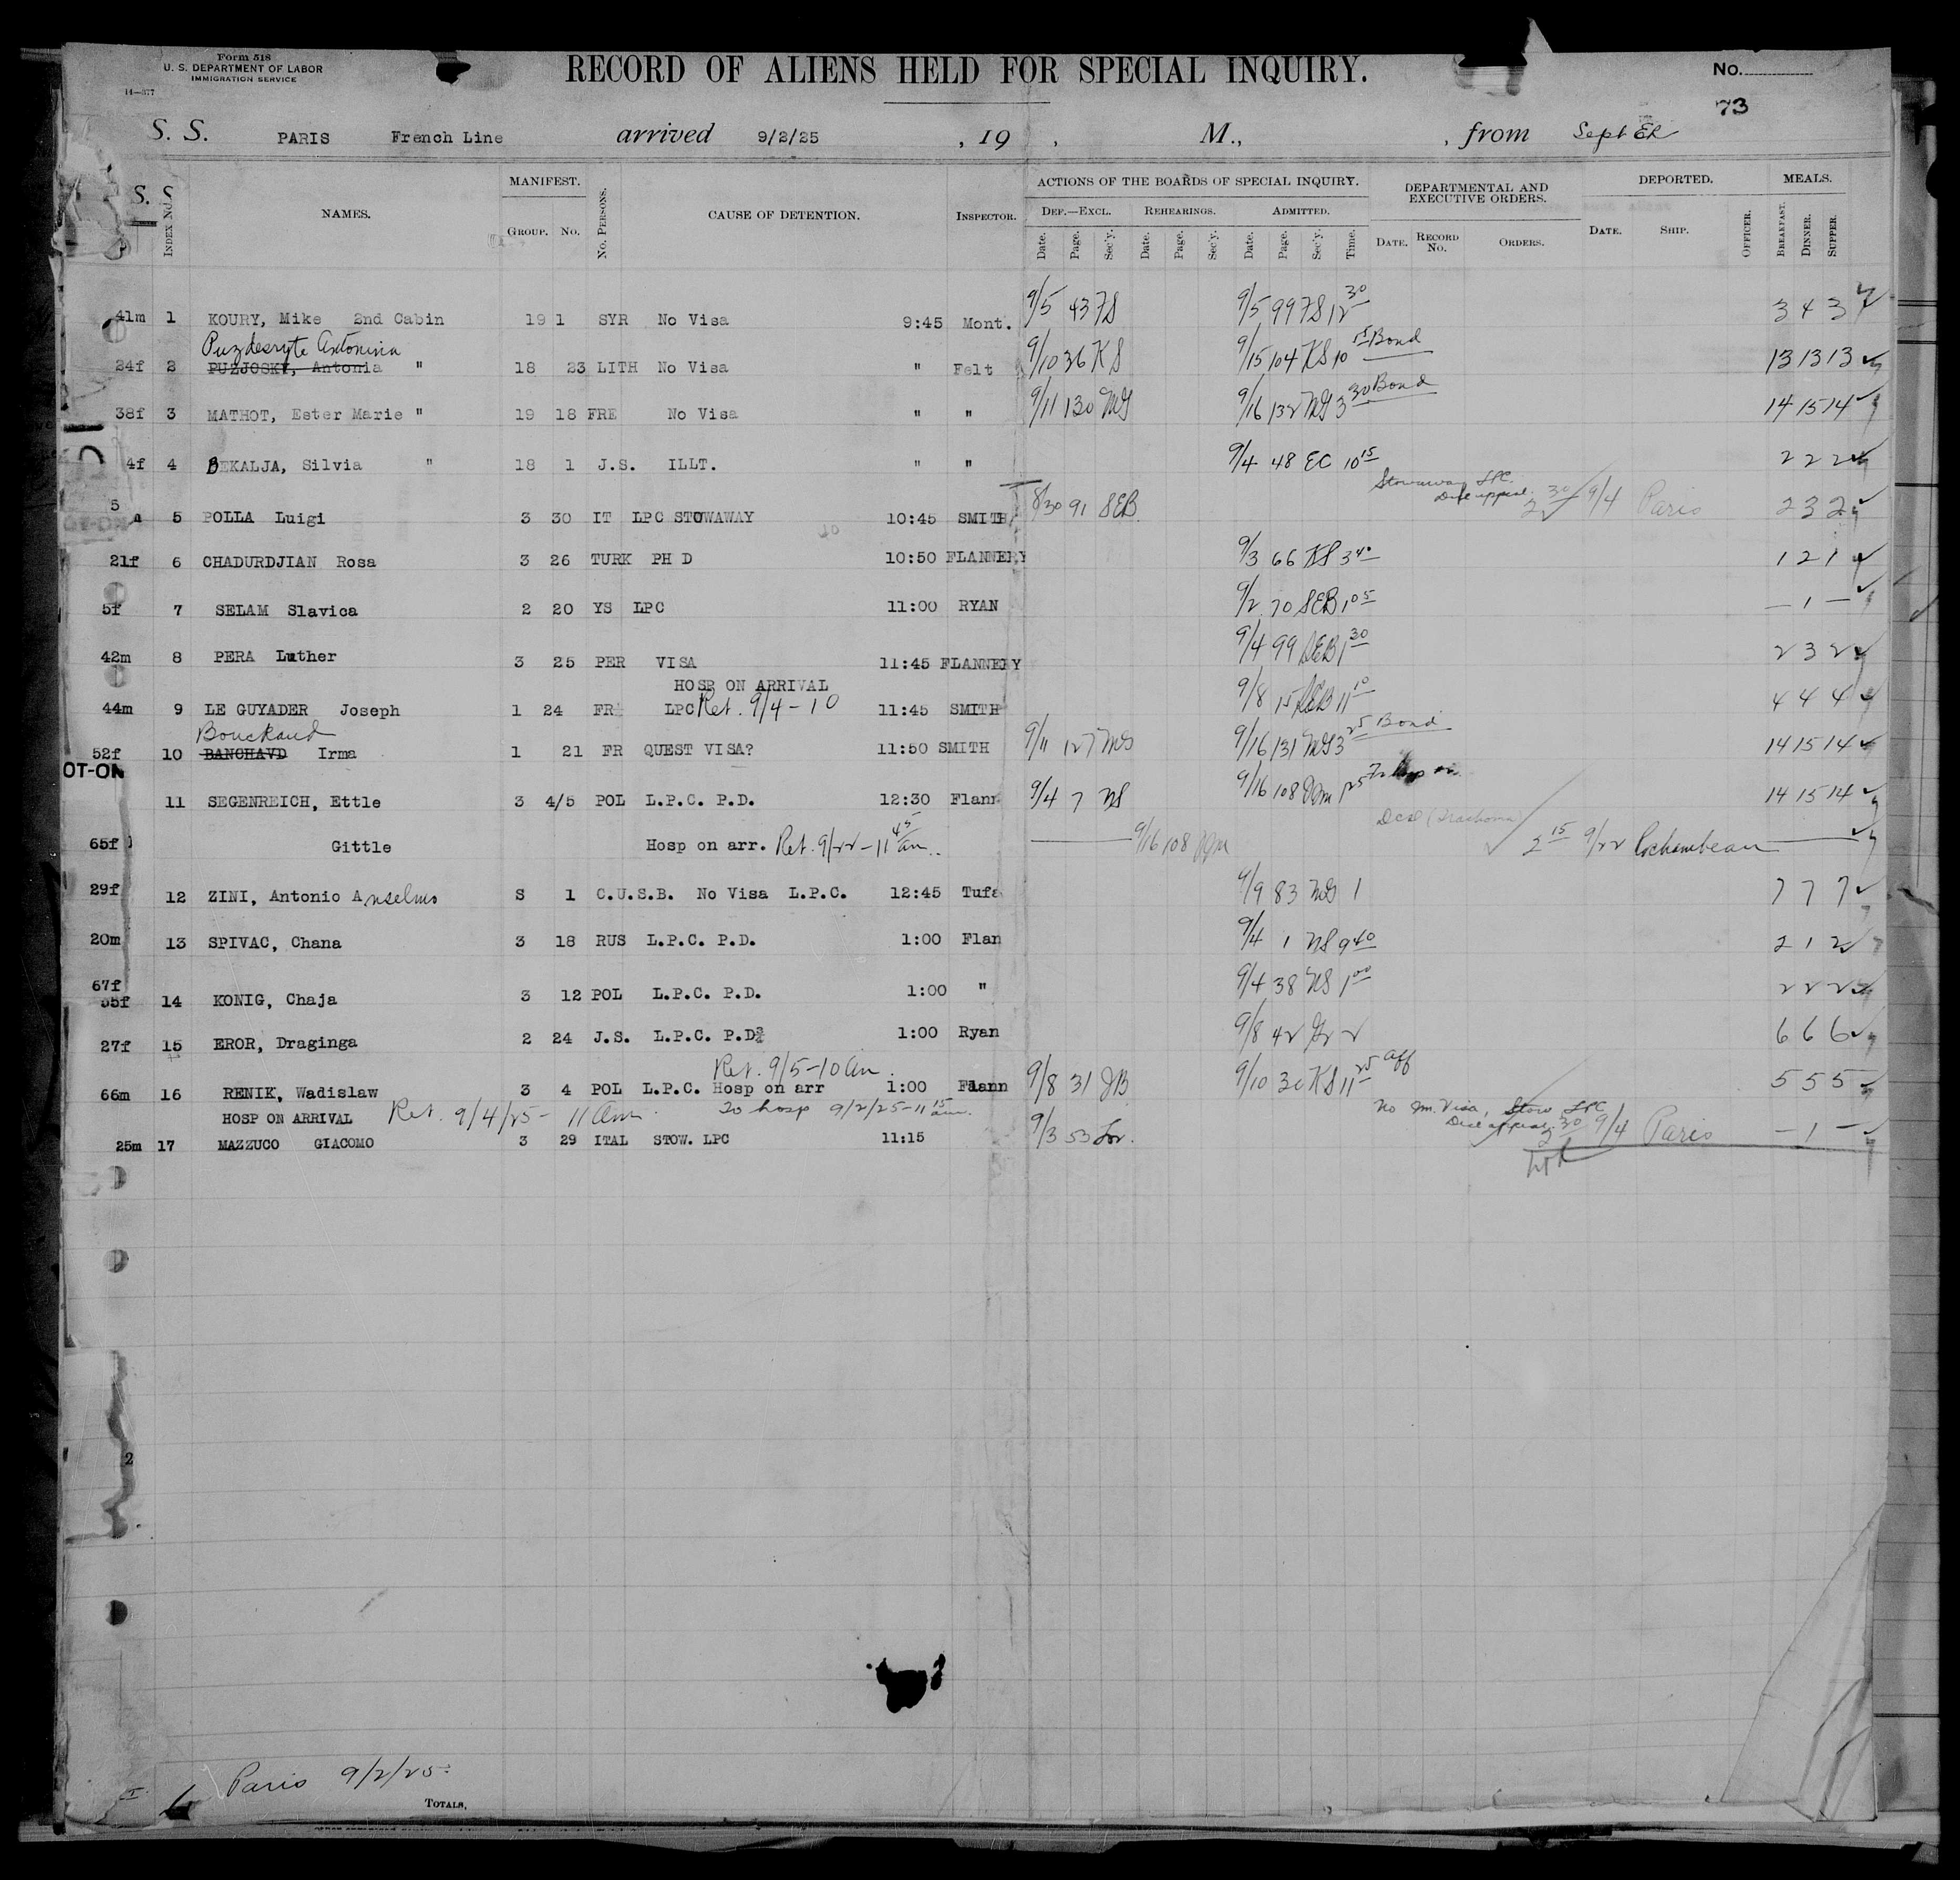 Form 518
U. S. DEPARTMENT OF LABOR
IMMIGRATION SERVICE
14—377
RECORD OF ALIENS HELD FOR SPECIAL INQUIRY.
No.
73
S. S. PARIS French Line arrived 9/2/25 , 19 , M., , from Sept
S. S. INDEX NO. NAMES. MANIFEST. GROUP. NO. NO. PERSONS. CAUSE OF DETENTION. INSPECTOR. ACTIONS OF THE BOARDS OF SPECIAL INQUIRY. DEF.—EXCL. REHEARINGS. ADMITTED. DEPARTMENTAL AND EXECUTIVE ORDERS. DEPORTED. MEALS.
Date. Page. Sec'y. Date. Page. Sec'y. Date. Page. Sec'y. Time. DATE. RECORD NO. ORDERS. DATE. SHIP. OFFICER. BREAKFAST. DINNER. SUPPER.
41m 1 KOURY, Mike 2nd Cabin 19 1 SYR No Visa 9:45 Mont. 9/5 43 FS 9/5 99 FS 12 30 3 4 3
Puzdesryte Antonina
24f 2 PUZJOSKY, Antonia " 18 23 LITH No Visa " Felt 9/10 36 KS 9/15 104 KS 10 15 Bond 13 13 13
38f 3 MATHOT, Ester Marie " 19 18 FRE No Visa " " 9/11 130 MG 9/16 132 MG 3 30 Bond 14 15 14
4f 4 BEKALJA, Silvia " 18 1 J.S. ILLT. " " 9/4 48 EC 10 15 2 2 2
Stowaway LPC.
5 5 POLLA Luigi 3 30 IT LPC STOWAWAY 10:45 SMITH 8/30 91 SEB 2 30 9/4 Paris 2 3 2
21f 6 CHADURDJIAN Rosa 3 26 TURK PH D 10:50 FLANNERY 9/3 66 KS 3 40 1 2 1
5f 7 SELAM Slavica 2 20 YS LPC 11:00 RYAN 9/2 70 SEB 1 05 — 1 —
42m 8 PERA Luther 3 25 PER VISA 11:45 FLANNERY 9/4 99 SEB 1 30 2 3 2
HOSP ON ARRIVAL
44m 9 LE GUYADER Joseph 1 24 FR LPC Ret. 9/4 - 10 11:45 SMITH 9/8 15 SEB 11 10 4 4 4
Bouchaud
52f 10 BANCHAVD Irma 1 21 FR QUEST VISA? 11:50 SMITH 9/11 127 MG 9/16 131 MG 3 25 Bond 14 15 14
OT-ON
11 SEGENREICH, Ettle 3 4/5 POL L.P.C. P.D. 12:30 Flann 9/4 7 NS 9/16 108 14 15 14
Decd (Trachoma)
65f Gittle Hosp on arr. Ret. 9/22 - 11 45 am. 9/16 108 2 15 9/22 Rochambeau
29f 12 ZINI, Antonio Anselmo S 1 C.U.S.B. No Visa L.P.C. 12:45 Tufa 9/9 83 MG 1 7 7 7
20m 13 SPIVAC, Chana 3 18 RUS L.P.C. P.D. 1:00 Flan 9/4 1 NS 9 40 2 1 2
67f
55f 14 KONIG, Chaja 3 12 POL L.P.C. P.D. 1:00 " 9/4 38 NS 1 00 2 2 2
27f 15 EROR, Draginga 2 24 J.S. L.P.C. P.D. 1:00 Ryan 9/8 42 2 6 6 6
Ret. 9/5 - 10 am.
66m 16 RENIK, Wadislaw 3 4 POL L.P.C. Hosp on arr 1:00 Flann 9/8 31 JB 9/10 30 KS 11 25 aff 5 5 5
HOSP ON ARRIVAL Ret. 9/4/25 - 11 am. To hosp 9/2/25 - 11 15 am. No Im. Visa, Stow LPC
25m 17 MAZZUCO GIACOMO 3 29 ITAL STOW. LPC 11:15 9/3 53 2 30 9/4 Paris — 1 —
2
Paris 9/2/25
TOTALS,